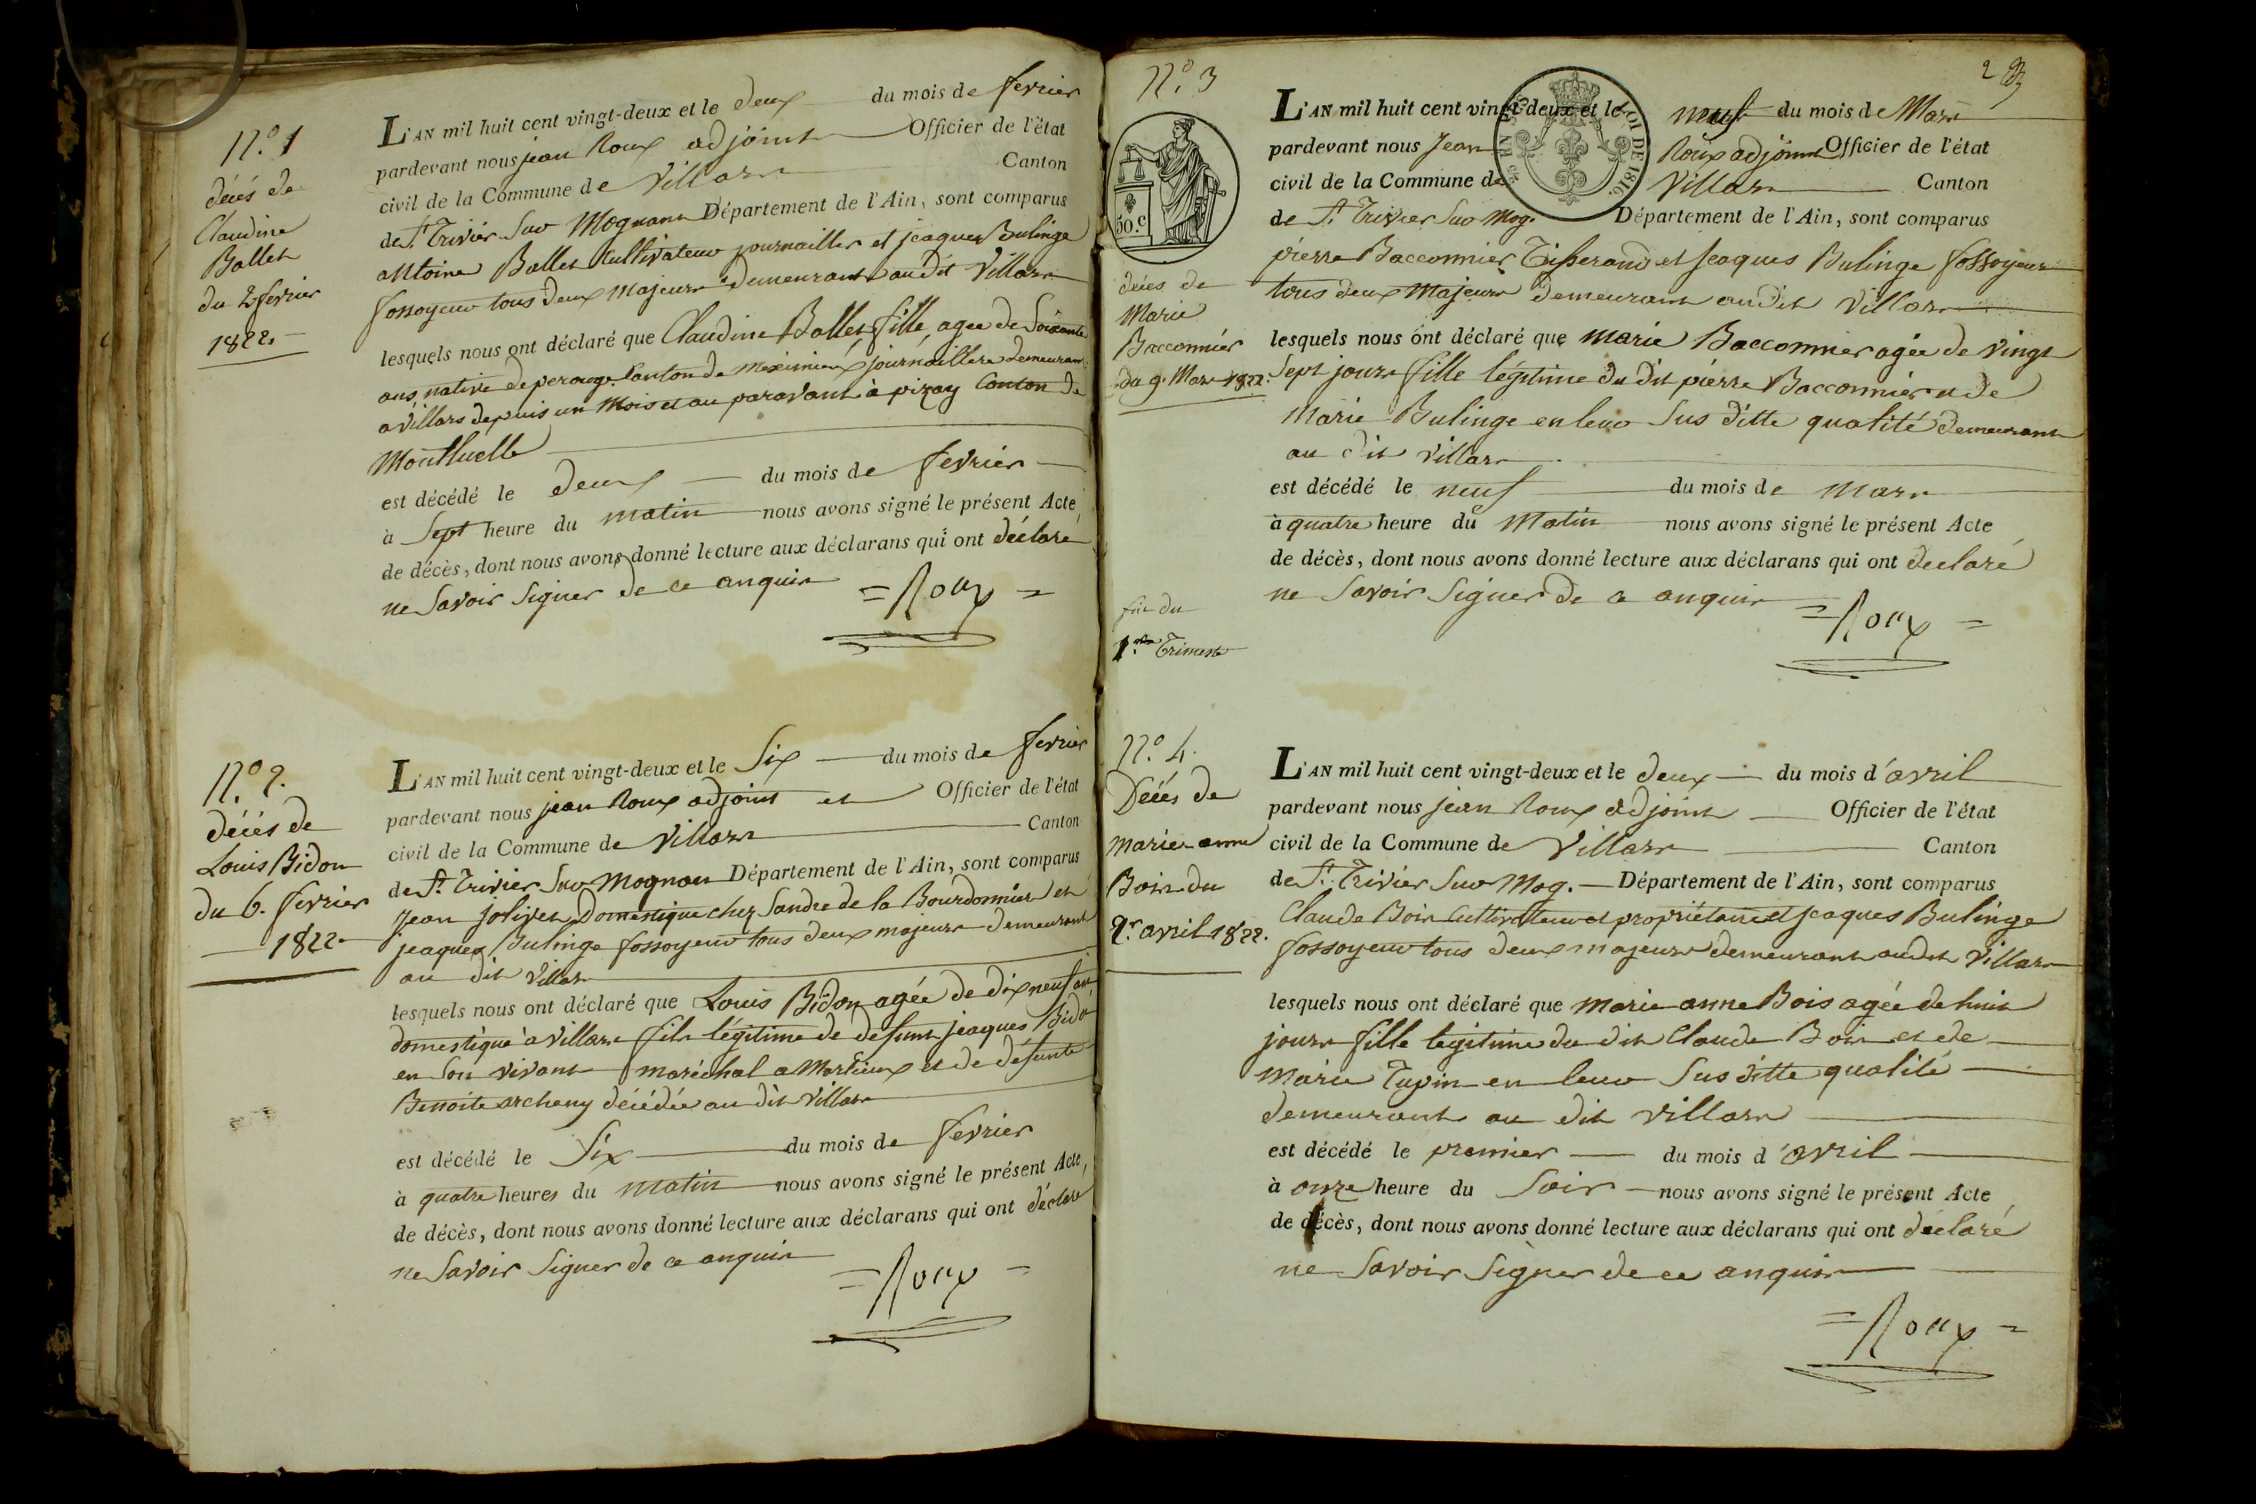 N.o 1
décés de
Claudine
Ballet
du 2 fevrier
1822
L'AN mil huit cent vingt-deux et le deux du mois de fevrier
pardevant nous jean Roux adjoint Officier de l'état
civil de la Commune de Villars Canton
de St. Trivier sur Mognans Département de l'Ain, sont comparus
antoine Ballet Cultivateur journallier et jeaques Bulinge
fossoyeur tous deux majeurs demeurant au dit Villars
lesquels nous ont déclaré que Claudine Ballet fille, agee de Soixante
ans, native de perouge Canton de meximieux journaillere demeurant
a Villars depuis un Mois et au paravant à pizay Canton de
Montluelle
est décédé le deux du mois de fevrier
à Sept heure du matin nous avons signé le présent Acte
de décès, dont nous avons donné lecture aux déclarans qui ont déclare
ne Savoir Signer de ce anquis
= Roux =
N.o 2.
décés de
Louis Bidon
du 6. fevrier
1822
L'AN mil huit cent vingt-deux et le Six du mois de fevrier
pardevant nous jean Roux adjoint et Officier de l'état
civil de la Commune de Villars Canton
de St. Trivier Sur Mognans Département de l'Ain, sont comparus
Jean jolivet Domestique chez Sandre de la Bourdonnier et
jeaques Bulinge fossoyeur tous deux majeurs demeurant
au dit Villars
lesquels nous ont déclaré que Louis Bidon agée de dix neuf ans
domestique à Villars fils légitime de defunt jeaques Bido
en Son vivant maréchal a Marlieux et de défunte
Benoite archeny décédée au dit Villars
est décédé le Six du mois de fevrier
à quatre heures du matin nous avons signé le présent Acte,
de décès, dont nous avons donné lecture aux déclarans qui ont déclaré
ne Savoir Signer de ce anquis
= Roux =
2
N.o 3
50.c
LOI DE 1816.
décés de
Marie
Bacconnier
du 9. Mars 1822.
L'AN mil huit cent vingt-deux et le neuf du mois de Mars
pardevant nous Jean Roux adjoint Officier de l'état
civil de la Commune de Villars Canton
de St. Trivier Sur Mog. Département de l'Ain, sont comparus
pierre Bacconnier Tisserand et Jeaques Bulinge fossoyeur
tous deux Majeurs demeurant au dit Villars
lesquels nous ont déclaré que marie Bacconnier agée de vingt
Sept jours fille légitime du dit pierre Bacconnier et de
Marie Bulinge en leur Sus ditte qualité demeurant
au dit Villars
est décédé le neuf du mois de Mars
à quatre heure du Matin nous avons signé le présent Acte
de décès, dont nous avons donné lecture aux déclarans qui ont declaré
ne Savoir Signer de ce anquis
= Roux =
fin du
1.er Trimestre
N.o 4.
Décés de
Marie anne
Bois du
2. avril 1822.
L'AN mil huit cent vingt-deux et le deux du mois d'avril
pardevant nous jean Roux adjoint Officier de l'état
civil de la Commune de Villars Canton
de St. Trivier Sur Mog. Département de l'Ain, sont comparus
Claude Bois Cultivateur et propriétaire et Jeaques Bulinge
fossoyeur tous deux majeurs demeurant au dit Villars
lesquels nous ont déclaré que marie anne Bois agée de huit
jours fille legitime du dit Claude Bois et de
Marie Tupin en leur Sus ditte qualité
demeurant au dit Villars
est décédé le premier du mois d'avril
à onze heure du Soir nous avons signé le présent Acte
de décès, dont nous avons donné lecture aux déclarans qui ont déclaré
ne Savoir Signer de ce anquis
= Roux =